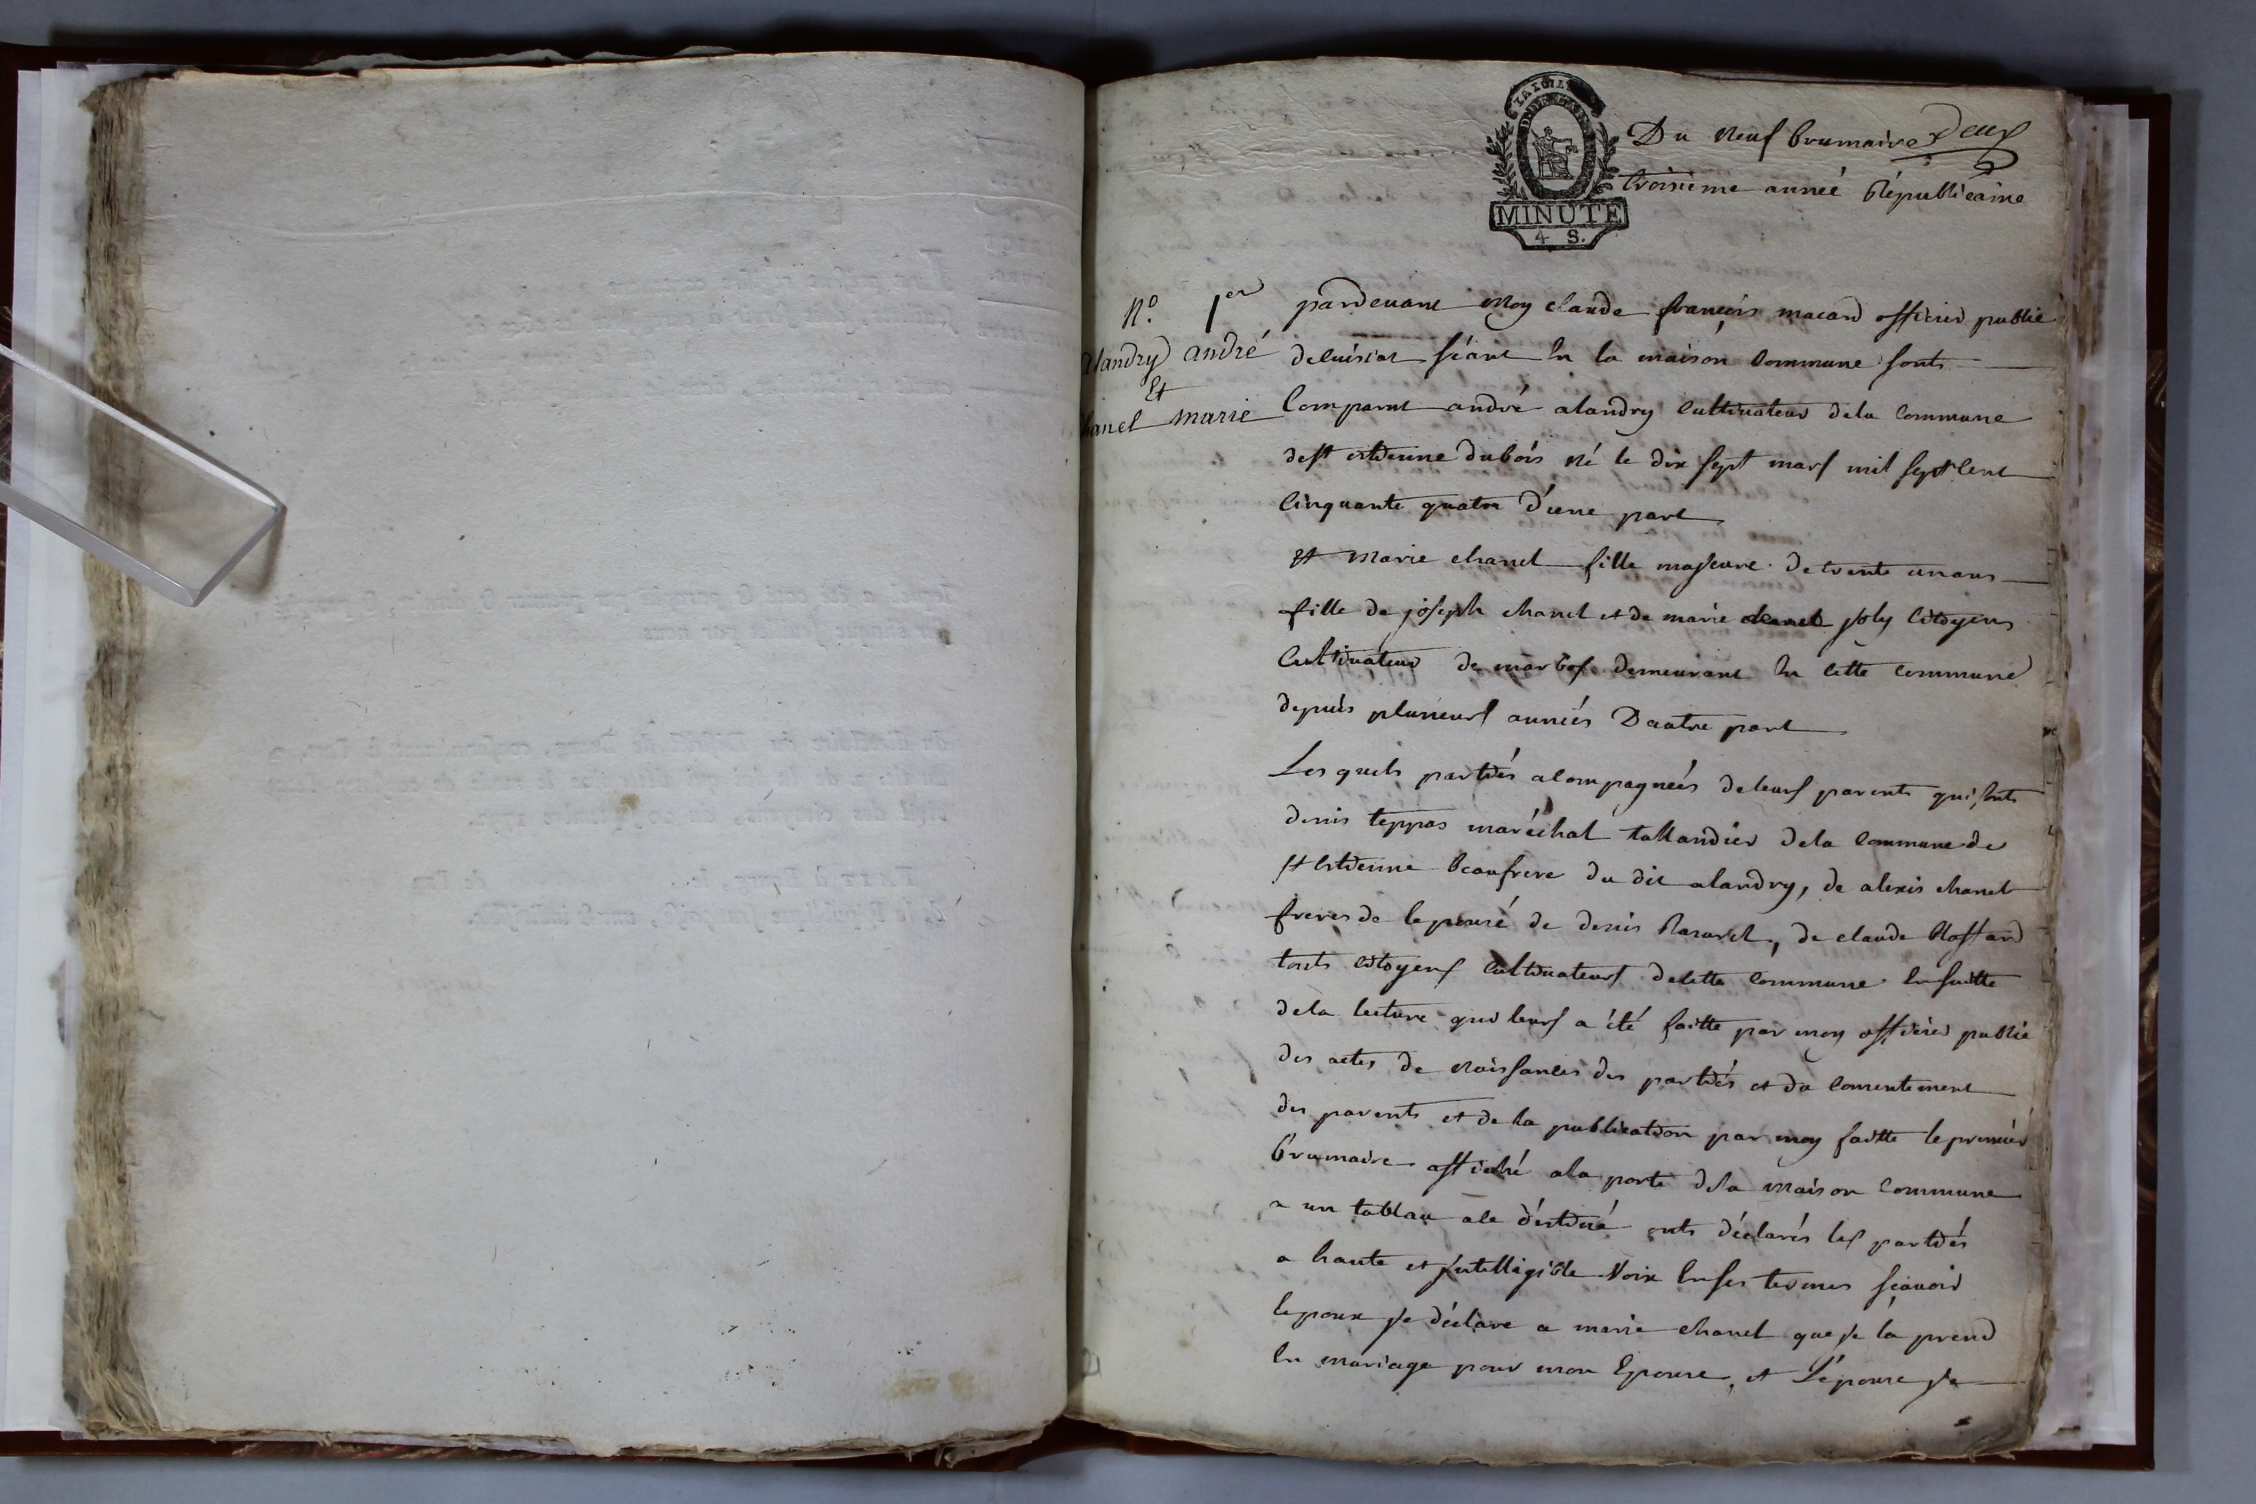 LA LOI
MINUTE
4 S.
Deux
Du neuf brumaire
troisieme année Républicaine
N.º 1er
alandry andré
Et
chanel marie
pardevant moy claude françois macard officier public
de cuisiat séant En la maison Commune sonts
Comparut andré alandry Cultivateur dela Commune
de st estienne dubois né le dix sept mars mil sept Cent
Cinquante quatre d'une part
Et marie chanel fille majeure de trente un ans
fille de joseph chanel et de marie joly Citoyens
Cultivateur de marbos demeurant En Cette Commune
depuis plusieurs années Dautre part
Les quels partiés acompagneés de leurs parents qui sonts
denis teppas maréchal tallandier dela Commune de
st Estienne beaufrere du dit alandry, de alexis chanel
freres de lepousé de denis , de claude
touts Citoyens Cultivateurs de Cette Commune Ensuitte
dela lecture que leurs a été faitte par moy officier public
des actes de naissances des partiés et du Consentement
des parents et de la publication par moy faitte le premier
brumaire affiché ala porte dela maison Commune
a un tableau a ce déstiné onts déclarés les partiés
a haute et jntelligible voix En ses termes scavoir
lepoux je déclare a marie chanel que je la prend
En mariage pour mon Epouse, et L'épouse je